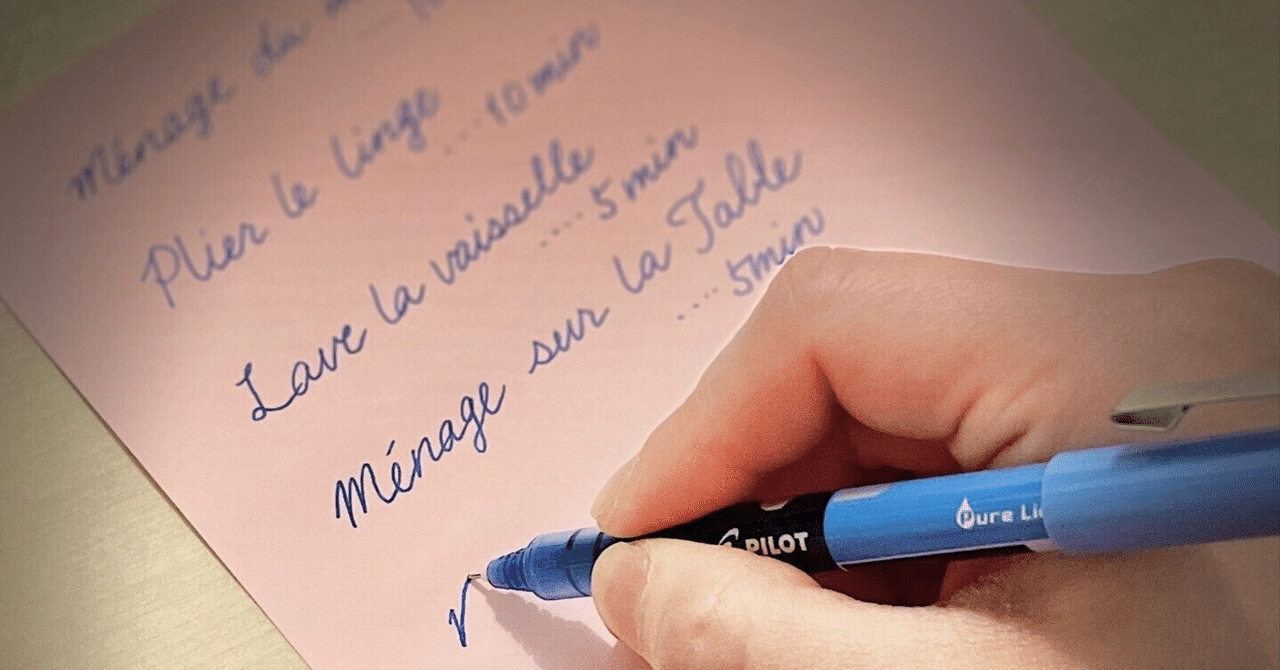 Ménage du
Plier le linge
....10min
Lave la vaisselle
....5min
Ménage sur la Table
....5min
PILOT
Pure Li